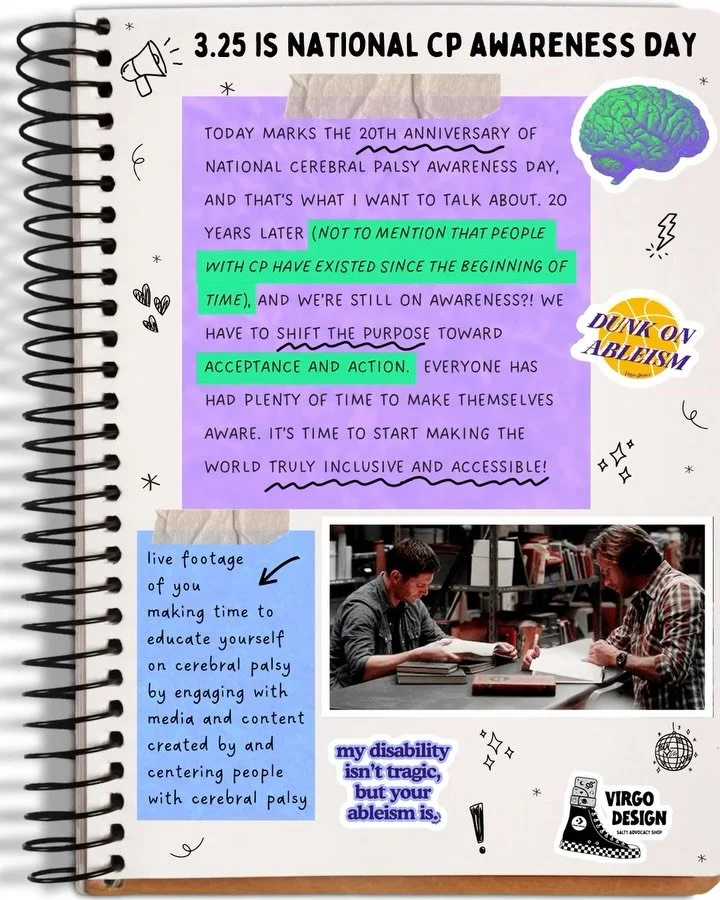 3.25 IS NATIONAL CP AWARENESS DAY
TODAY MARKS THE 20TH ANNIVERSARY OF
NATIONAL CEREBRAL PALSY AWARENESS DAY,
AND THAT'S WHAT I WANT TO TALK ABOUT. 20
YEARS LATER (NOT TO MENTION THAT PEOPLE
WITH CP HAVE EXISTED SINCE THE BEGINNING OF
TIME), AND WE'RE STILL ON AWARENESS?! WE
HAVE TO SHIFT THE PURPOSE TOWARD
ACCEPTANCE AND ACTION. EVERYONE HAS
HAD PLENTY OF TIME TO MAKE THEMSELVES
AWARE. IT'S TIME TO START MAKING THE
WORLD TRULY INCLUSIVE AND ACCESSIBLE!
DUNK ON
ABLEISM
live footage
of you
making time to
educate yourself
on cerebral palsy
by engaging with
media and content
created by and
centering people
with cerebral palsy
my disability
isn't tragic,
but your
ableism is.
VIRGO
DESIGN
SALTY ADVOCACY SHOP